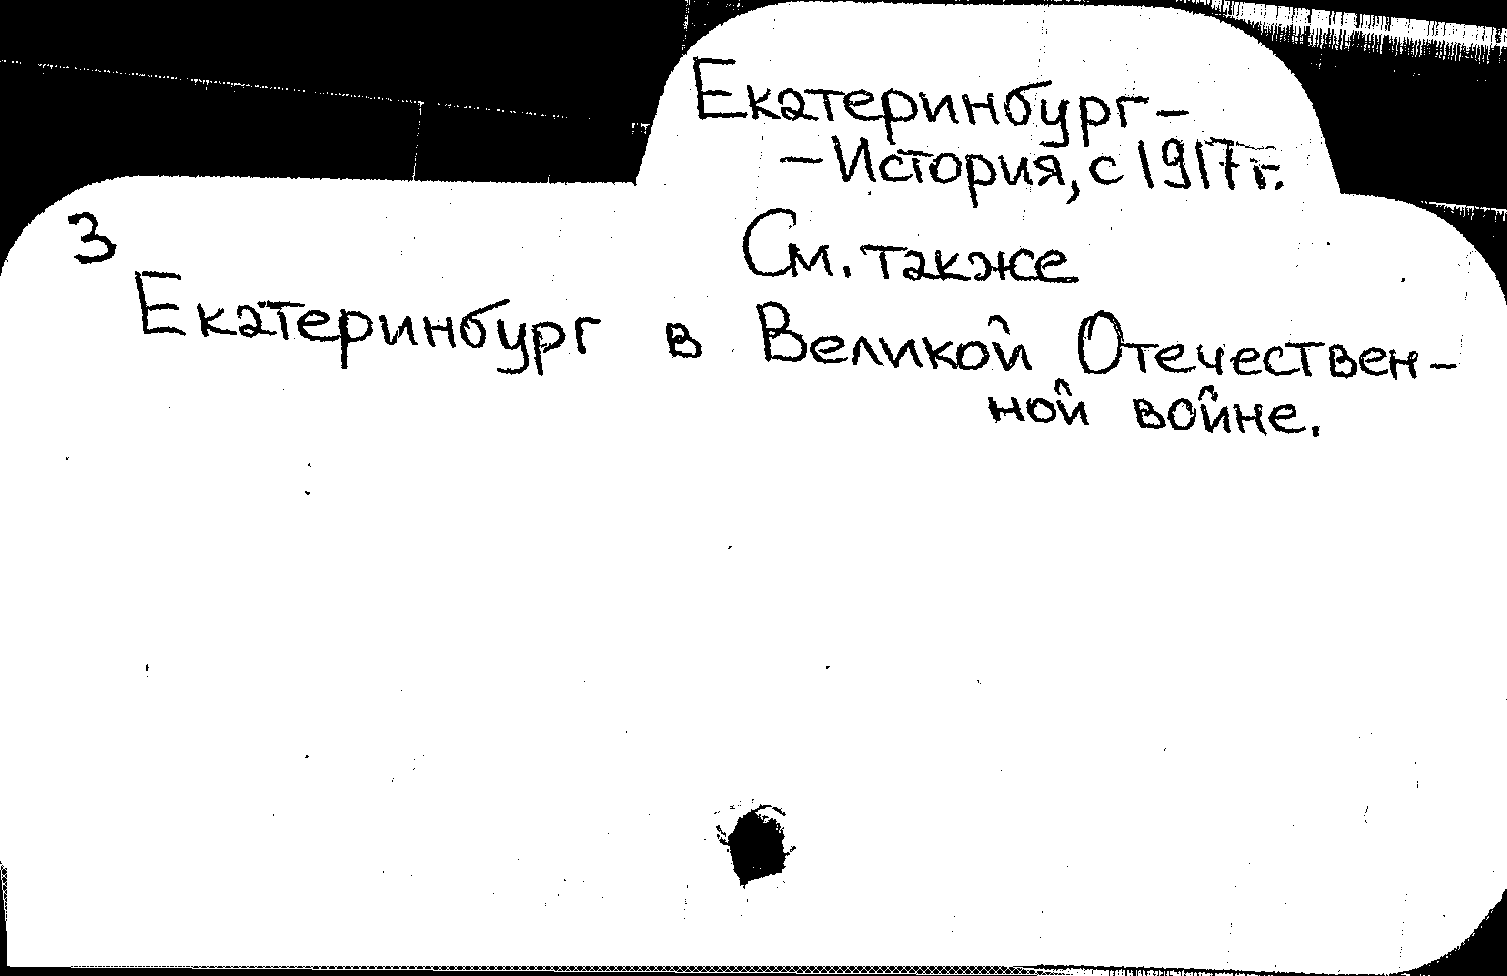 Екатеринбург-
-История, с 1917 г.
3
См. также
Екатеринбург в Великой Отечествен-
ной войне.